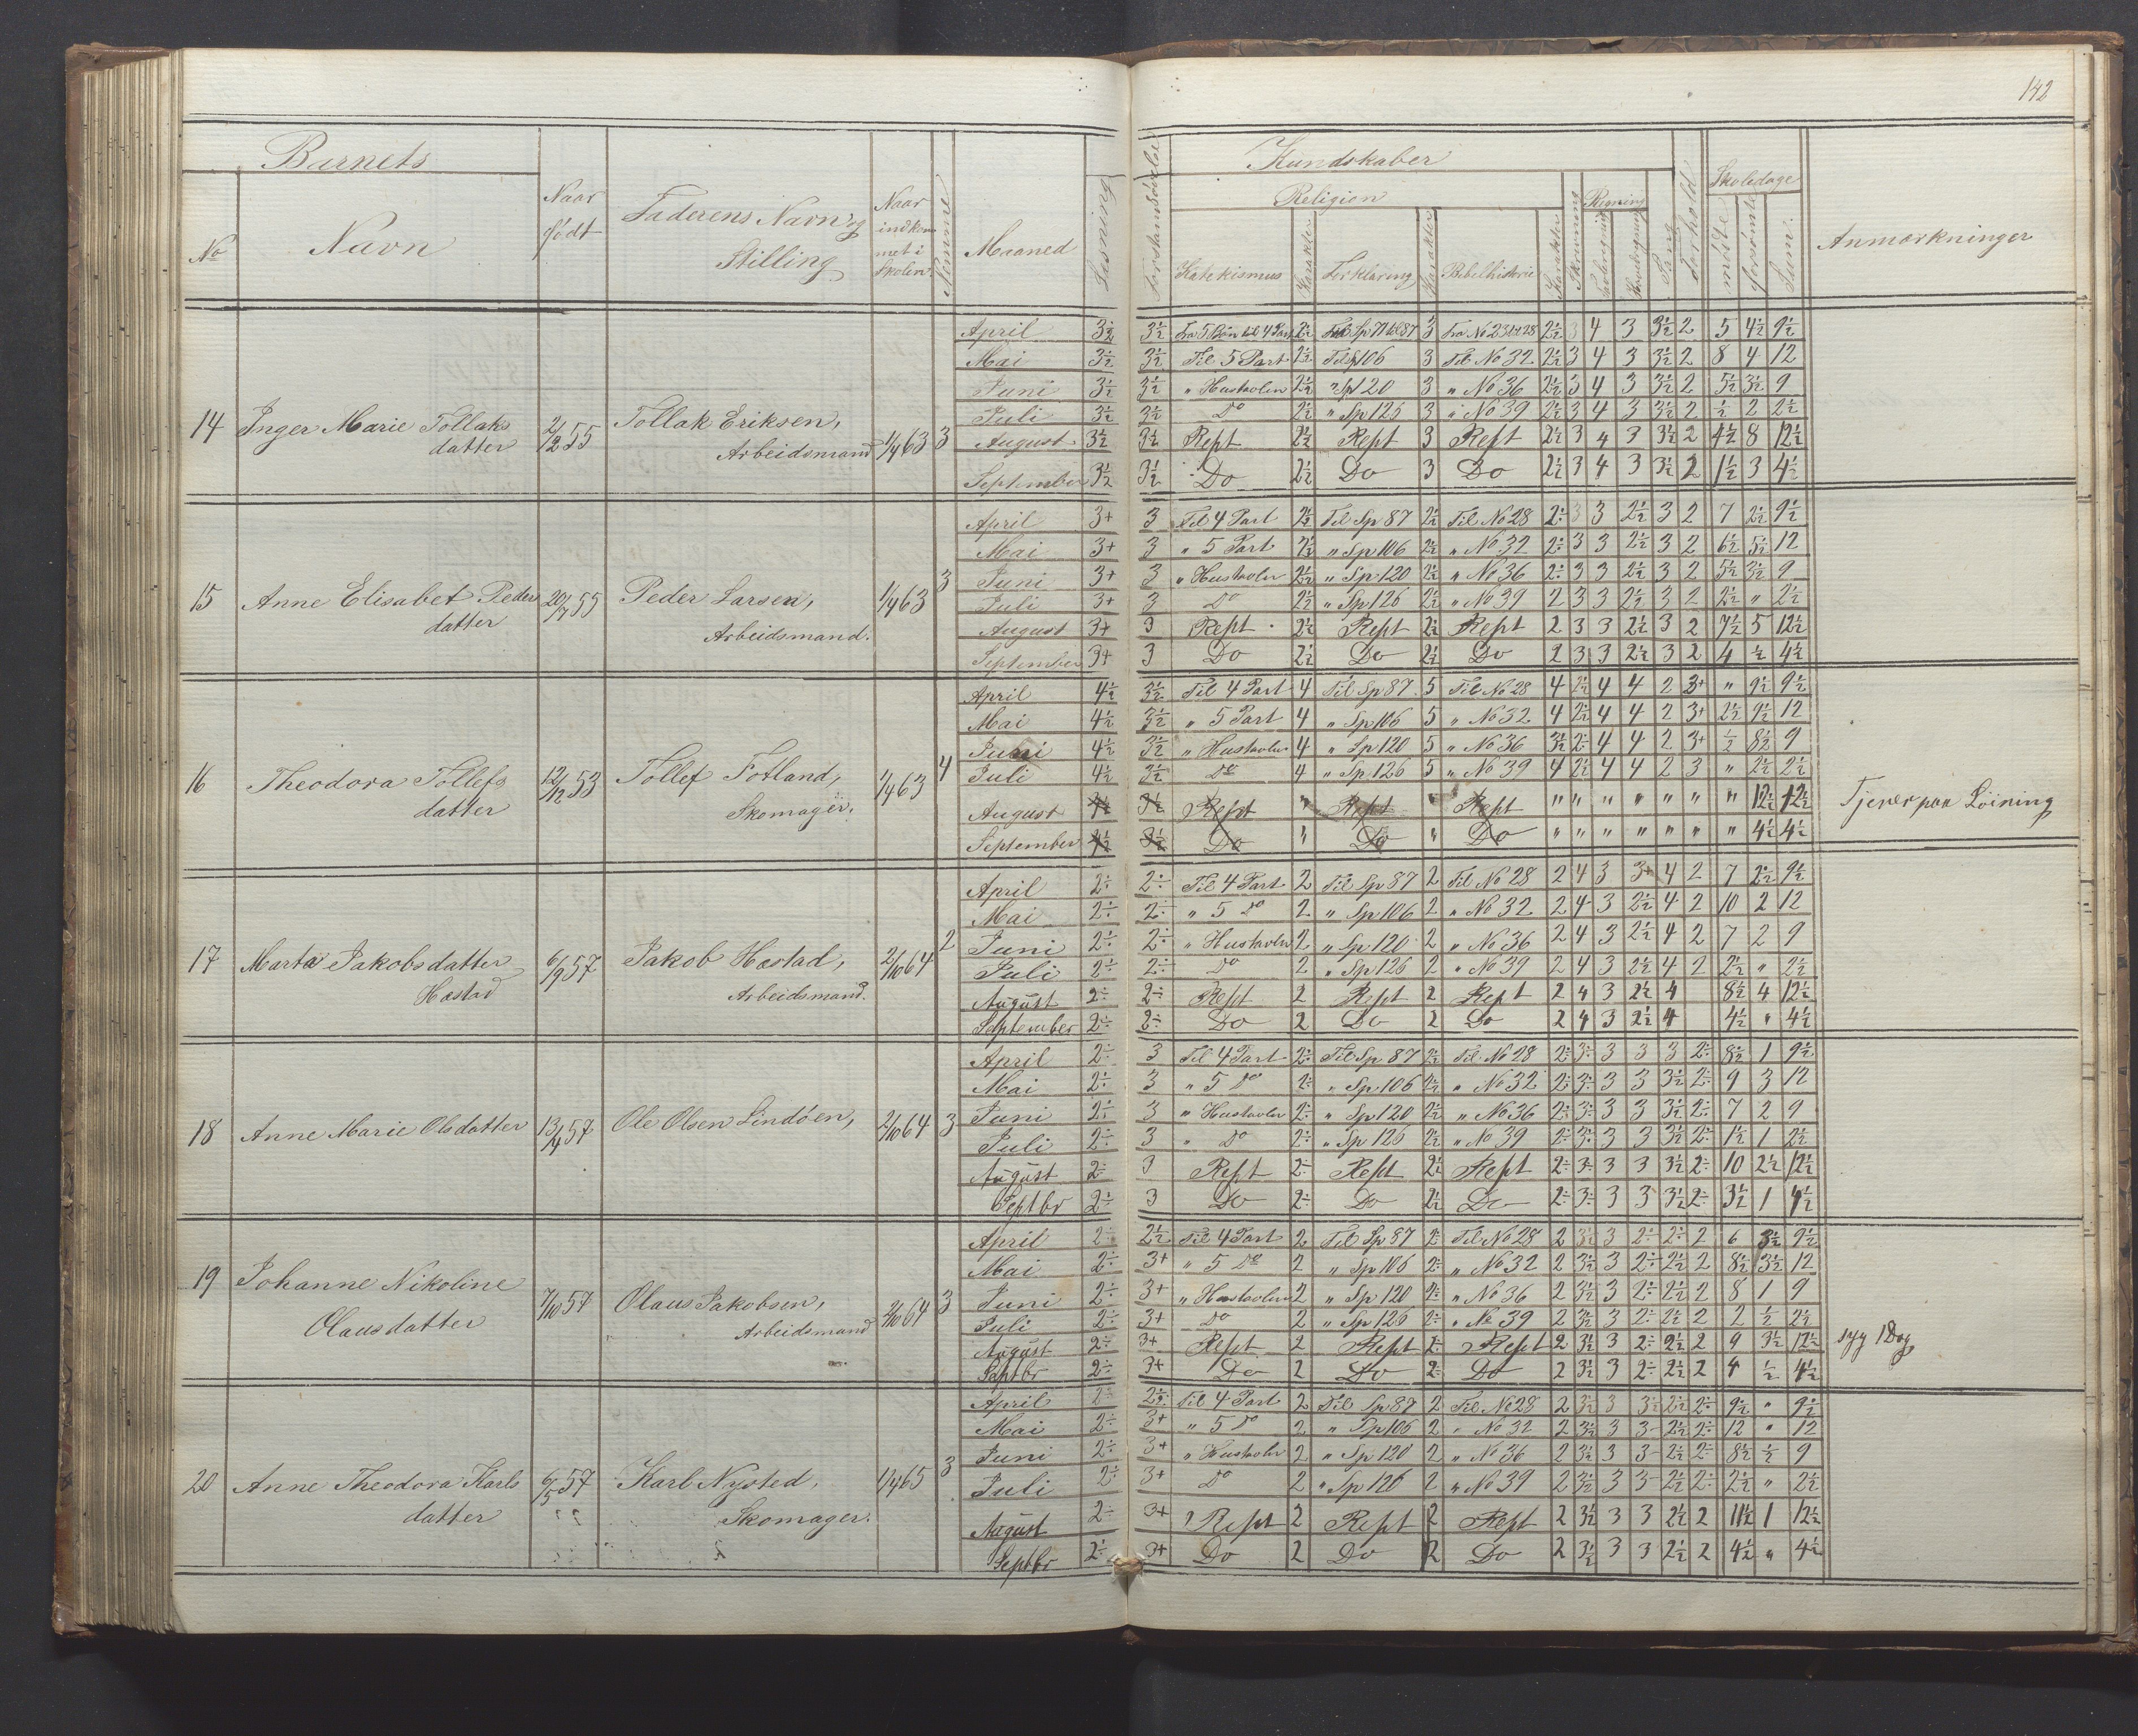 142
Barnets
No
Navn
Naar født
Faderens Navn og Stilling
Naar indkommet i Skolen
Nummer
Maaned
Læsning
Forstandsøvelse
Kundskaber
Religion
Katekismus
Karakter
Forklaring
Karakter
Bibelhistorie
Karakter
Skrivning
Regning
Sang
Forhold
Skoledage
mødte
forsømte
Sum
Anmærkninger
14 Inger Marie Tollaksdatter 2/12 55 Tollak Eriksen, Arbeidsmand 1/4 63 3
April 3½ 3½ Fra 5 Bøn til 4 Part 2½ Fra Sp 71 til 87 3 Fra No 23 til 28 2½ 3 4 3 3½ 2 5 4½ 9½
Mai 3½ 3½ Til 5 Part 2½ Til Sp 106 3 Til No 32 2½ 3 4 3 3½ 2 8 4 12
Juni 3½ 3½ " Hustavlen 2½ " Sp 120 3 " No 36 2½ 3 4 3 3½ 2 5½ 3½ 9
Juli 3½ 3½ Do 2½ " Sp 126 3 " No 39 2½ 3 4 3 3½ 2 ½ 2 2½
August 3½ 3½ Rept 2½ Rept 3 Rept 2½ 3 4 3 3½ 2 4½ 8 12½
September 3½ 3½ Do 2½ Do 3 Do 2½ 3 4 3 3½ 2 1½ 3 4½
15 Anne Elisabet Pedersdatter 20/7 55 Peder Larsen, Arbeidsmand. 1/4 63 3
April 3+ 3 Til 4 Part 2½ Til Sp 87 2½ Til No 28 2÷ 3 3 2½ 3 2 7 2½ 9½
Mai 3+ 3 " 5 Part 2½ " Sp 106 2½ " No 32 2÷ 3 3 2½ 3 2 6½ 5½ 12
Juni 3+ 3 " Hustavlen 2½ " Sp 120 2½ " No 36 2÷ 3 3 2½ 3 2 5½ 3½ 9
Juli 3+ 3 Do 2½ " Sp 126 2½ " No 39 2 3 3 2½ 3 2 2½ " 2½
August 3+ 3 Rept 2½ Rept 2½ Rept 2 3 3 2½ 3 2 7½ 5 12½
September 3+ 3 Do 2½ Do 2½ Do 2 3 3 2½ 3 2 4 ½ 4½
16 Theodora Tollefsdatter 12/12 53 Tollef Fotland, Skomager. 1/4 63 4
April 4½ 3½ Til 4 Part 4 Til Sp 87 5 Til No 28 4 2½ 4 4 2 3+ " 9½ 9½
Mai 4½ 3½ " 5 Part 4 " Sp 106 5 " No 32 4 2½ 4 4 2 3+ 2½ 9½ 12
Juni 4½ 3½ " Hustavlen 4 " Sp 120 5 " No 36 3½ 2÷ 4 4 2 3+ ½ 8½ 9
Juli 4½ 3½ Do 4 " Sp 126 5 " No 39 4 2½ 4 4 2 3 " 2½ 2½
August 4½ 3½ Rept " Rept " Rept " " " " " " " 12½ 12½
September 4½ 3½ Do " Do " Do " " " " " " " 4½ 4½
Tjener paa Løining
17 Marta Jakobsdatter Hæstad 6/9 57 Jakob Hæstad, Arbeidsmand. 2/10 64 2
April 2÷ 2÷ Til 4 Part 2 Til Sp 87 2 Til No 28 2 4 3 3+ 4 2 7 2½ 9½
Mai 2÷ 2÷ " 5 Do 2 " Sp 106 2 " No 32 2 4 3 2½ 4 2 10 2 12
Juni 2÷ 2÷ " Hustavlen 2 " Sp 120 2 " No 36 2 4 3 2½ 4 2 7 2 9
Juli 2÷ 2÷ Do 2 " Sp 126 2 " No 39 2 4 3 2½ 4 2 2½ " 2½
August 2÷ 2÷ Rept 2 Rept 2 Rept 2 4 3 2½ 4 8½ 4 12½
September 2÷ 2÷ Do 2 Do 2 Do 2 4 3 2½ 4 4½ " 4½
18 Anne Marie Olsdatter 13/4 57 Ole Olsen Lindøen, 2/10 64 3
April 2÷ 3 Til 4 Part 2÷ Til Sp 87 2½ Til No 28 2÷ 3÷ 3 3 3 2÷ 8½ 1 9½
Mai 2÷ 3 " 5 Do 2÷ " Sp 106 2½ " No 32 2÷ 3÷ 3 3 3½ 2÷ 9 3 12
Juni 2÷ 3 " Hustavlen 2÷ " Sp 120 2½ " No 36 2÷ 3÷ 3 3 3½ 2÷ 7 2 9
Juli 2÷ 3 " Do 2÷ " Sp 126 2½ " No 39 2÷ 3÷ 3 3 3½ 2÷ 1½ 1 2½
August 2÷ 3 Rept 2÷ Rept 2½ Rept 2÷ 3÷ 3 3 3½ 2÷ 10 2½ 12½
Septbr 2÷ 3 Do 2÷ Do 2½ Do 2÷ 3÷ 3 3 3½ 2÷ 3½ 1 4½
19 Johanne Nikoline Olausdatter 7/10 57 Olaus Jakobsen, Arbeidsmand 2/10 64 3
April 2÷ 2½ Til 4 Part 2 Til Sp 87 2÷ Til No 28 2 3½ 3 2÷ 2÷ 2 6 3½ 9½
Mai 2÷ 3+ " 5 Do 2 " Sp 106 2÷ " No 32 2 3½ 3 2÷ 2½ 2 8½ 3½ 12
Juni 2÷ 3+ " Hustavlen 2 " Sp 120 2÷ " No 36 2 3½ 3 2÷ 2½ 2 8 1 9
Juli 2÷ 3+ Do 2 " Sp 126 2÷ " No 39 2 3½ 3 2÷ 2½ 2 2 ½ 2½
August 2÷ 3+ Rept 2 Rept 2÷ Rept 2 3½ 3 2÷ 2½ 2 9 3½ 12½
syg 1 Dag
Septbr 2÷ 3+ Do 2 Do 2÷ Do 2 3½ 3 2÷ 2½ 2 4 ½ 4½
20 Anne Theodora Karlsdatter 6/5 57 Karl Nysted, Skomager. 1/4 65 3
April 2÷ 2½ Til 4 Part 2 Til Sp 87 2 Til No 28 2 3½ 3 3½ 2½ 2÷ 9½ " 9½
Mai 2÷ 3+ " 5 Do 2 " Sp 106 2 " No 32 2 3½ 3 3- 2½ 2÷ 12 " 12
Juni 2÷ 3+ " Hustavlen 2 " Sp 120 2 " No 36 2 3½ 3 3- 2½ 2÷ 8½ ½ 9
Juli 2÷ 3+ Do 2 " Sp 126 2 " No 39 2 3½ 3 3- 2½ 2÷ 2½ " 2½
August 2÷ 3+ Rept 2 Rept 2 Rept 2 3½ 3 3 2½ 2 11½ 1 12½
Septbr 2÷ 3+ Do 2 Do 2 Do 2 3½ 3 3 2½ 2 4½ " 4½